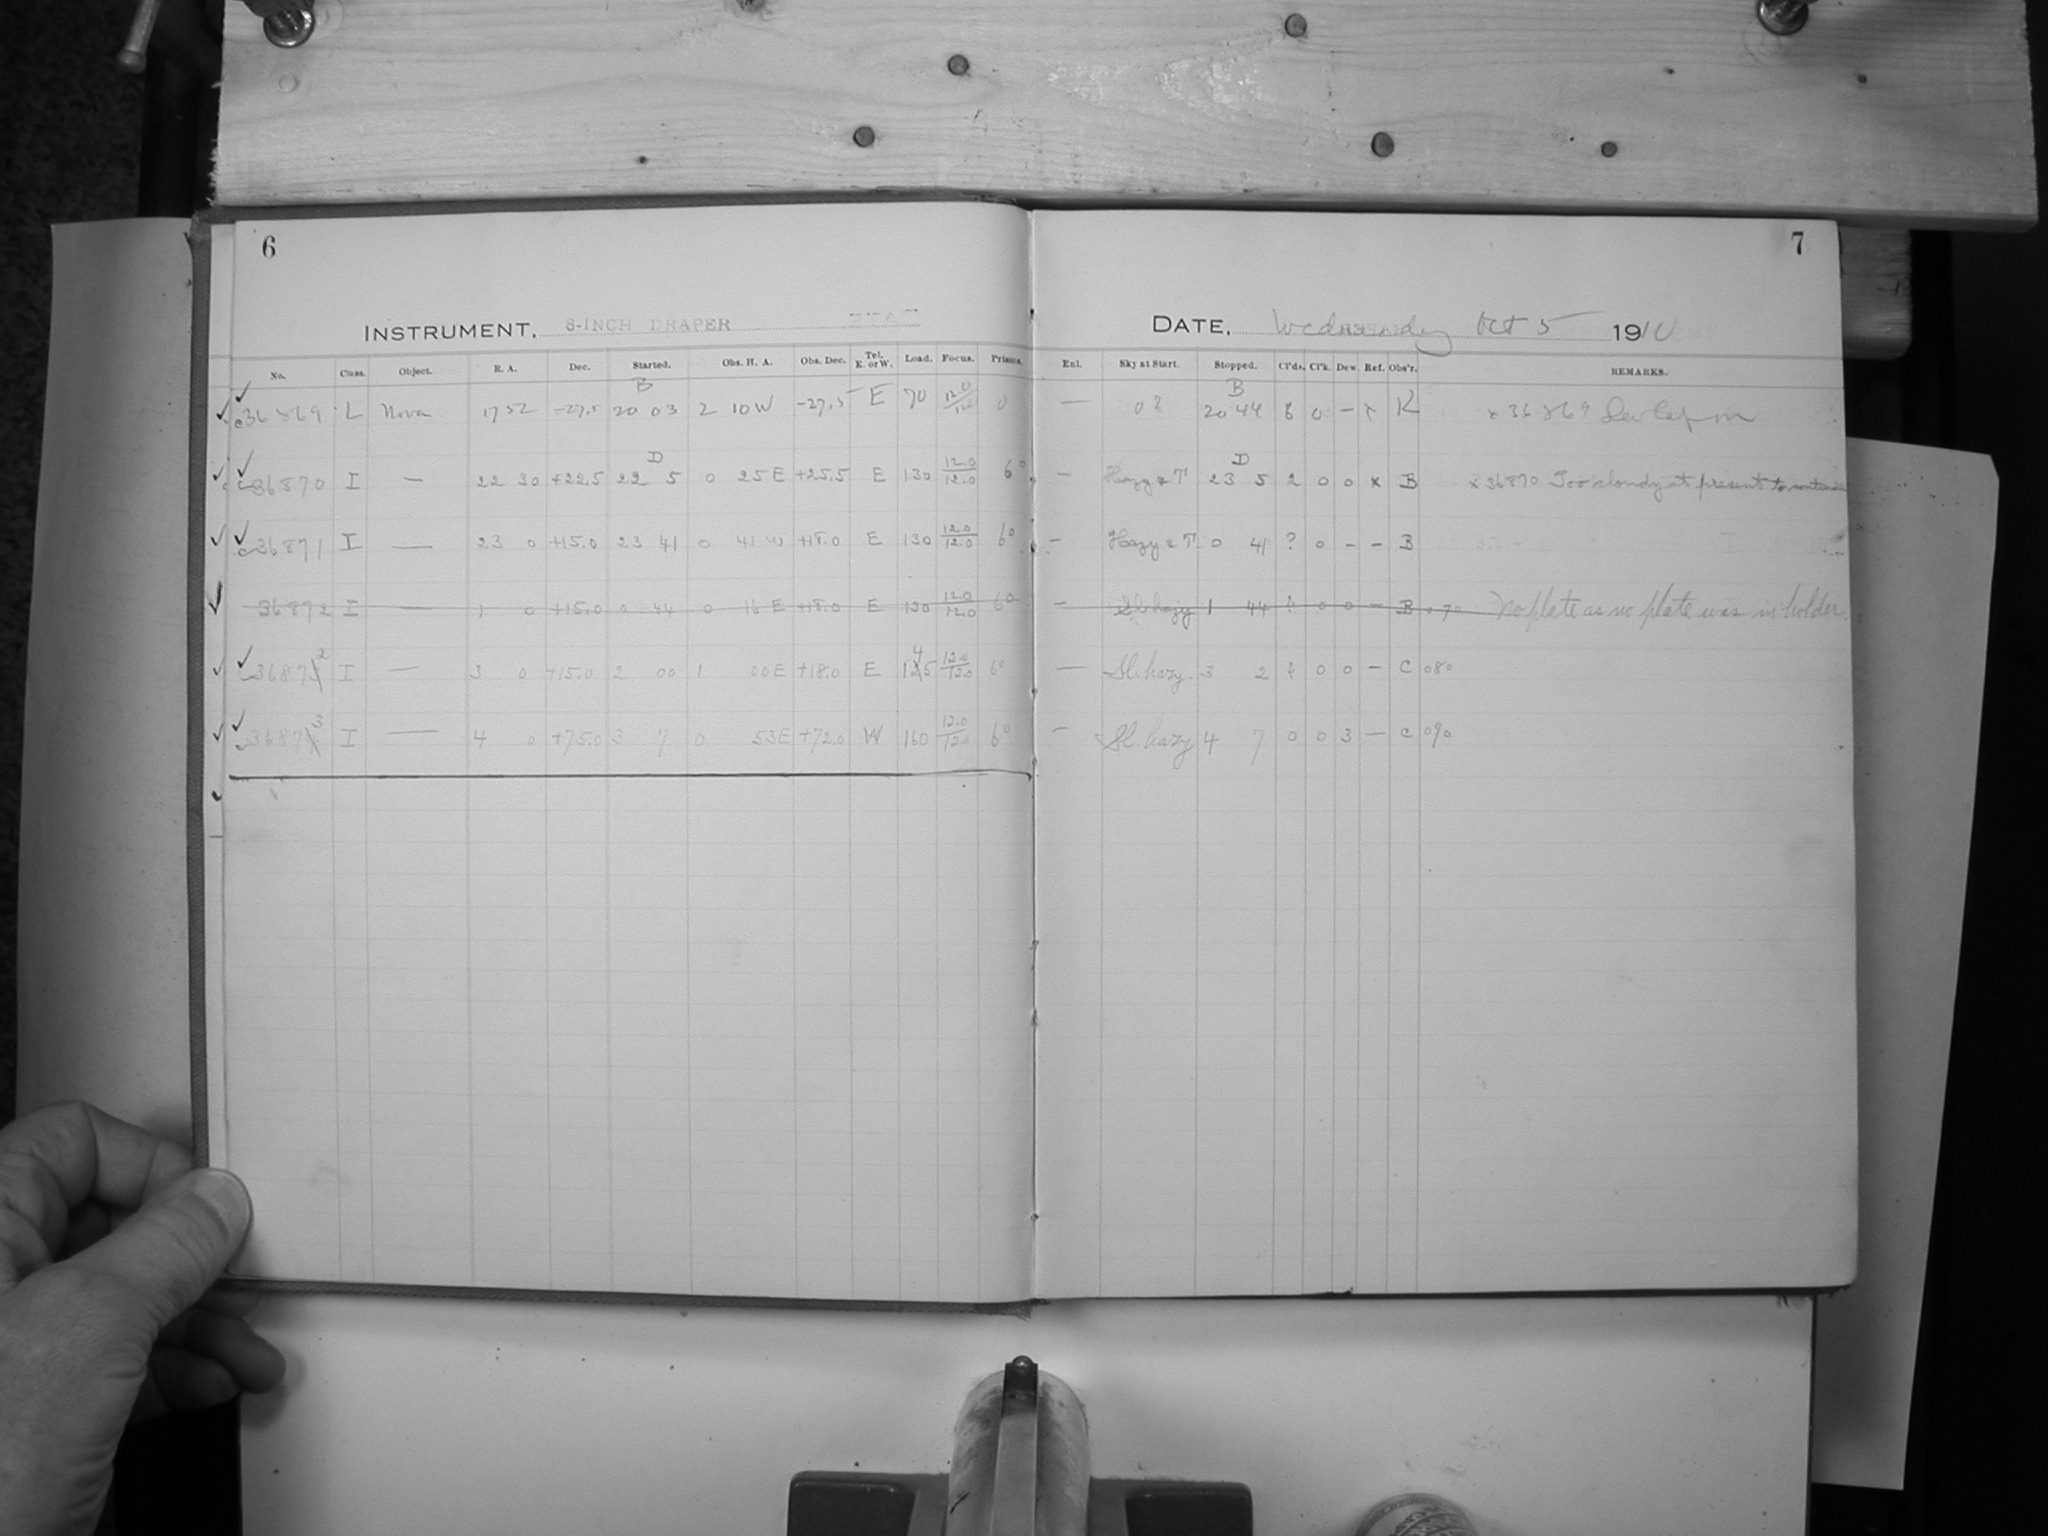 6
7
INSTRUMENT, 8-INCH DRAPER
DATE, Wednesday Oct 5 1910
No. Class. Object. R. A. Dec. Started. Obs. H. A. Obs. Dec. Tel. E. or W. Load. Focus. Prisms. Enl. Sky at Start. Stopped. Cl'ds. Cl'k. Dew. Ref. Obs'r. REMARKS.
B B
c36869 L Nova 17 52 -27.5 20 03 2 10 W -27.5 E 70 12.0/12.0 0 — 20 44 0 — x K x 36869
D D
c36870 I — 22 30 +22.5 22 5 0 25 E +25.5 E 130 12.0/12.0 6° — Hazy & T 23 5 2 0 0 x B x 36870 Too cloudy at present to continue
c36871 I — 23 0 +15.0 23 41 0 41 W +18.0 E 130 12.0/12.0 6° — Hazy & T 0 41 ? 0 – – B
36872 I — 1 0 +15.0 0 44 0 16 E +18.0 E 130 12.0/12.0 6° — Sl. hazy 1 44 ? 0 0 – B 070 No plate as no plate was in holder.
c36872 I — 3 0 +15.0 2 00 1 00 E +18.0 E 145 12.0/12.0 6° — Sl. hazy. 3 2 ? 0 0 – C 080
c36873 I — 4 0 +75.0 3 7 0 53 E +72.0 W 160 12.0/12.0 6° — Sl. hazy 4 7 0 0 3 — C 090